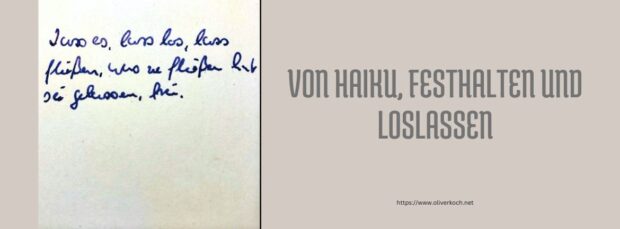 lass es, lass los, lass
fließen, was zu fließen hat
sei gelassen, frei.
VON HAIKU, FESTHALTEN UND
LOSLASSEN
https://www.oliverkoch.net